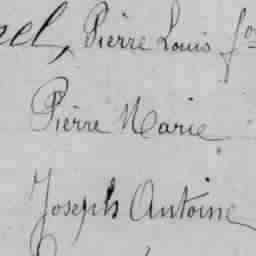 Pierre Louis
Pierre Marie
Joseph Antoine